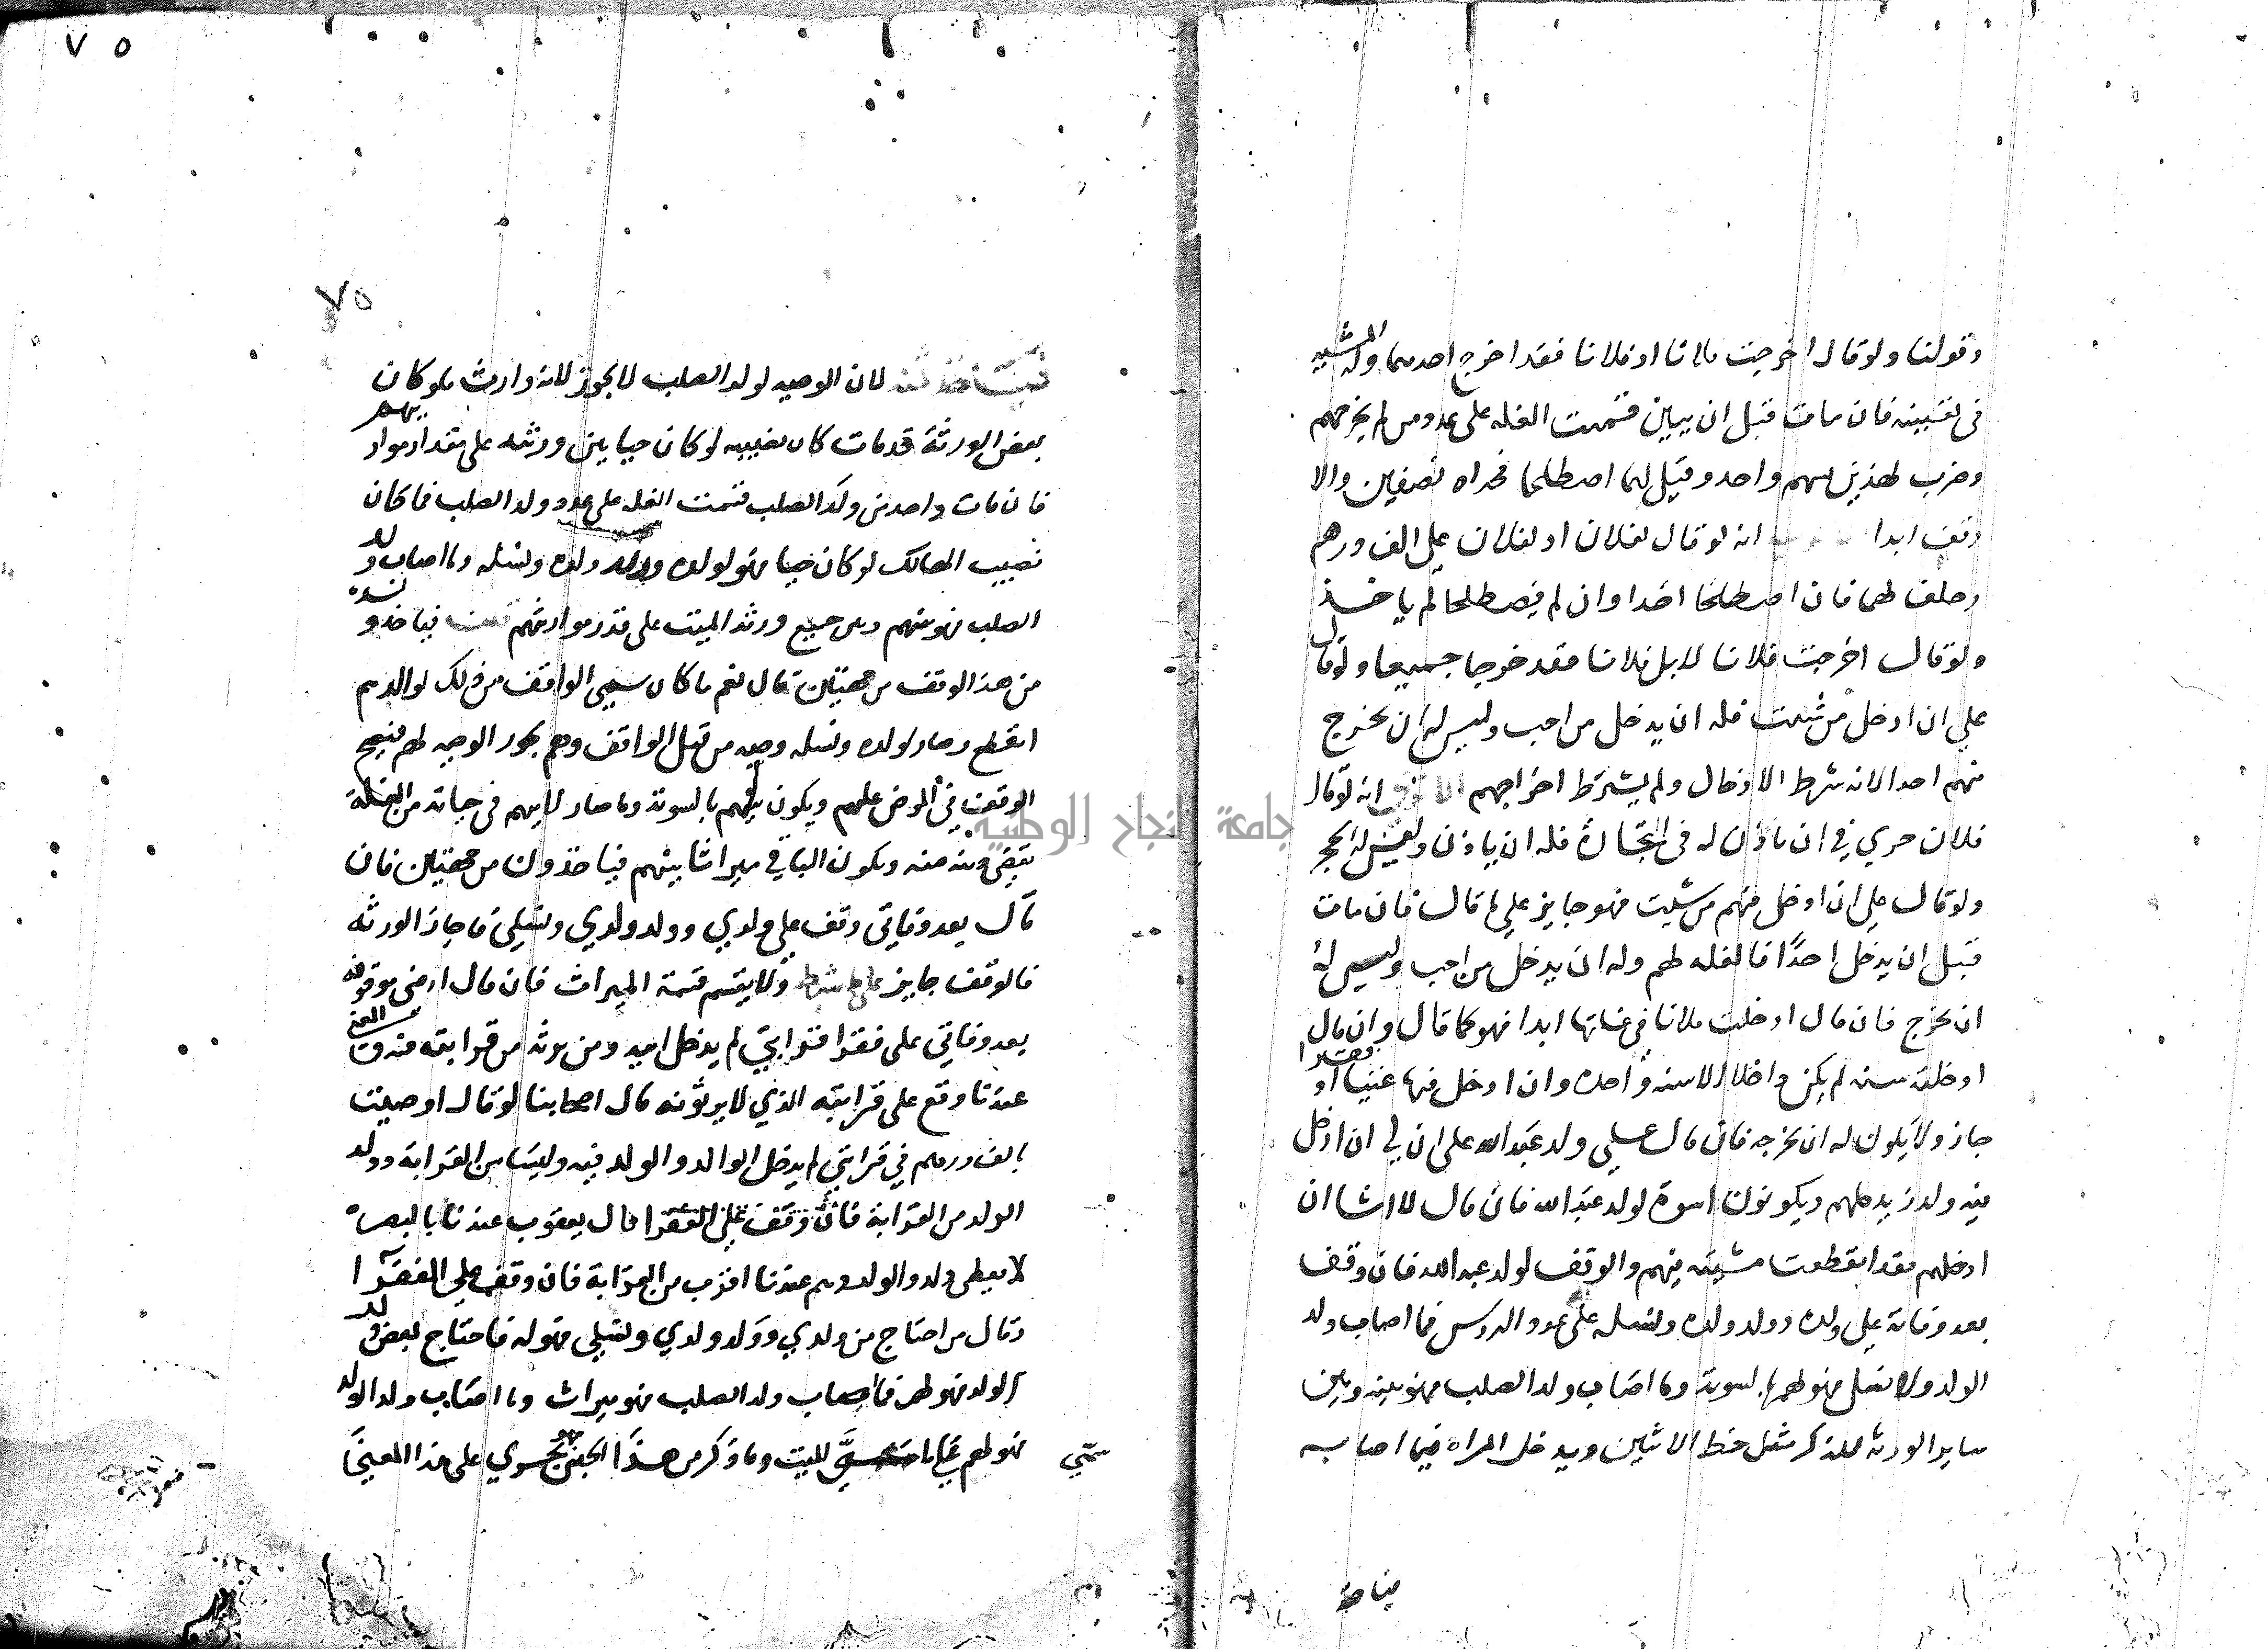 وقولنا ولو قال اخرجت فلانا او فلانا فقد اخرج احدهما والمشيه
في تعيينه فان مات قبل ان يبين قسمت الغله على عدد من لم يخرجهم
وضرب لهذين بسهم واحد وقيل لهما اصطلحا فخداه نصفين والا
وقف ابدا انه لو قال لفلان او لفلان علي الف درهم
وحلف لهما فان اصطلحا اخدا وان لم يصطلحا لم ياخذ
ولو قال اخرجت فلانا لا بل فلانا فقد خرجا جميعا ولو قال
علي ان ادخل من شئت فله ان يدخل من احب وليس له ان يخرج
منهم احدا لانه شرط الادخال ولم يشترط اخراجهم الا ترى انه لو قال
فلان حري في ان ياذن له في التجارة فله ان ياذن وليس له الحجر
ولو قال علي ان ادخل منهم من شيت فهو جايز علي ما قال فان مات
قبل ان يدخل احدًا فالغله لهم وله ان يدخل من احب وليس له
ان يخرج فان قال ادخلت فلانا في غلتها ابدا فهو كما قال وان قال
ادخلته سنه لم يكن داخلا الا سنه واحده وان ادخل فيها غنيا او فقيرا
جاز ولا يكون له ان يخرجه فان قال علي ولد عبد الله على ان لي ان ادخل
فيه ولد زيد فلهم ويكونون اسوة لولد عبد الله فان قال لا اشا ان
ادخلهم فقد انقطعت مشيته فيهم والوقف لولد عبد الله فان وقف
بعد وفاته علي ولده وولد ولده ونسله على عدد الروس فما اصاب ولد
الولد والنسل فهو لهم بالسوية وما اصاب ولد الصلب فهو بينه وبين
ساير الورثه للذكر مثل حظ الانثيين ويدخل المراه فيما اصابه
فياخذ
٧٥
٧٥
لان الوصيه لولد الصلب لا يجوز لانه وارث فلو كان
بعض الورثة قد مات كان نصيبه لو كان حيا بين ورثته على مقدار مواريثهم
فان مات واحد من ولد الصلب قسمت الغله على عدد ولد الصلب فما كان
نصيب الهالك لو كان حيا فهو لولده وولد ولده ونسله وما اصاب ولد
الصلب فهو بينهم وبين جميع ورثة الميت على قدر مواريثهم قلت فياخذ ولده
من هذا الوقف من جهتين قال نعم ما كان سمي الواقف من ذلك لوالدهم
انقطع وصار لولده ونسله وصيه من قبل الواقف وهم يجوز الوصيه لهم فيصح
الوقف في المرض عليهم ويكون بينهم بالسوية وما صار لابيهم في حياته من الغلة
يقضى دينه منه ويكون الباقي ميراثا بينهم فياخذون من جهتين فان
قال بعد وفاتي وقف على ولدي وولد ولدي ونسلي فاجاز الورثه
فالوقف جايز على ما شرط ولا يقسم قسمة الميراث فان قال ارضى موقوفه
بعد وفاتي على فقرا قرابتي لم يدخل فيه ومن يرثه من قرابته منه
عندنا وقع على قرابته الذي لا يرثونه قال اصحابنا لو قال اوصيت
بالف درهم في قرابتي لم يدخل الوالد والولد فيه وليسا من القرابة وولد
الولد من القرابة فان وقف على الفقرا قال يعقوب عندنا بالبصرة
لا يعطى ولد والولد وهم عندنا اقرب من القرابة فان وقف علي الفقرا
وقال من احتاج من ولدي وولد ولدي ونسلي فهو له فاحتاج بعض ولد
الولد فهو لهم فما اصاب ولد الصلب فهو ميراث وما اصاب ولد الولد
فهو لهم على ما سمى للميت وما ذكر من هذا الجنس فهو يجري على هذا المعنى
سمي
جامعة النجاح الوطنية